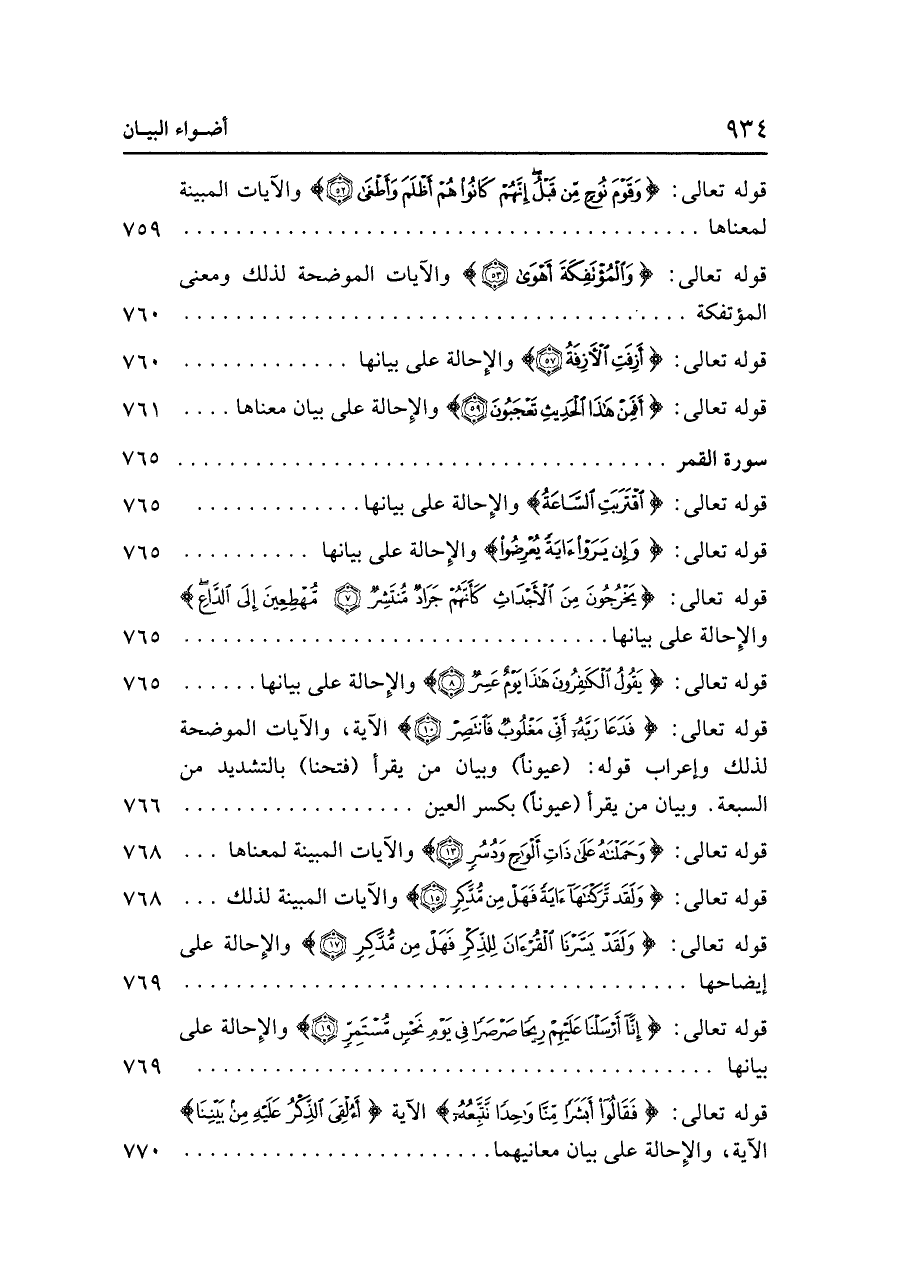 ٩٣٤ أضـواء البيـان
قوله تعالى: ﴿وَقَوْمَ نُوحٍ مِّن قَبْلُ ۖ إِنَّهُمْ كَانُوا۟ هُمْ أَظْلَمَ وَأَطْغَىٰ ٥٢﴾ والآيات المبينة
لمعناها . . . . . . . . . . . . . . . . . . . . ٧٥٩
قوله تعالى: ﴿وَٱلْمُؤْتَفِكَةَ أَهْوَىٰ ٥٣﴾ والآيات الموضحة لذلك ومعنى
المؤتفكة . . . . . . . . . . . . . . . . . . . . ٧٦٠
قوله تعالى: ﴿أَزِفَتِ ٱلْـَٔازِفَةُ ٥٧﴾ والإحالة على بيانها . . . . . . . . . . . . . ٧٦٠
قوله تعالى: ﴿أَفَمِنْ هَٰذَا ٱلْحَدِيثِ تَعْجَبُونَ ٥٩﴾ والإحالة على بيان معناها . . . . ٧٦١
سورة القمر . . . . . . . . . . . . . . . . . . . . ٧٦٥
قوله تعالى: ﴿ٱقْتَرَبَتِ ٱلسَّاعَةُ﴾ والإحالة على بيانها. . . . . . . . . . . . . ٧٦٥
قوله تعالى: ﴿وَإِن يَرَوْا۟ ءَايَةً يُعْرِضُوا۟﴾ والإحالة على بيانها . . . . . . . . . . ٧٦٥
قوله تعالى: ﴿يَخْرُجُونَ مِنَ ٱلْأَجْدَاثِ كَأَنَّهُمْ جَرَادٌ مُّنتَشِرٌ ٧ مُّهْطِعِينَ إِلَى ٱلدَّاعِ ۖ﴾
والإحالة على بيانها. . . . . . . . . . . . . . . . . . . . ٧٦٥
قوله تعالى: ﴿يَقُولُ ٱلْكَٰفِرُونَ هَٰذَا يَوْمٌ عَسِرٌ ٨﴾ والإحالة على بيانها. . . . . . ٧٦٥
قوله تعالى: ﴿فَدَعَا رَبَّهُۥٓ أَنِّى مَغْلُوبٌ فَٱنتَصِرْ ١٠﴾ الآية، والآيات الموضحة
لذلك وإعراب قوله: (عيوناً) وبيان من يقرأ (فتحنا) بالتشديد من
السبعة. وبيان من يقرأ (عيوناً) بكسر العين . . . . . . . . . . . . . . . . . . ٧٦٦
قوله تعالى: ﴿وَحَمَلْنَٰهُ عَلَىٰ ذَاتِ أَلْوَٰحٍ وَدُسُرٍ ١٣﴾ والآيات المبينة لمعناها . . . ٧٦٨
قوله تعالى: ﴿وَلَقَد تَّرَكْنَٰهَآ ءَايَةً فَهَلْ مِن مُّدَّكِرٍ ١٥﴾ والآيات المبينة لذلك . . . ٧٦٨
قوله تعالى: ﴿وَلَقَدْ يَسَّرْنَا ٱلْقُرْءَانَ لِلذِّكْرِ فَهَلْ مِن مُّدَّكِرٍ ١٧﴾ والإحالة على
إيضاحها . . . . . . . . . . . . . . . . . . . . ٧٦٩
قوله تعالى: ﴿إِنَّآ أَرْسَلْنَا عَلَيْهِمْ رِيحًا صَرْصَرًا فِى يَوْمِ نَحْسٍ مُّسْتَمِرٍّ ١٩﴾ والإحالة على
بيانها . . . . . . . . . . . . . . . . . . . . ٧٦٩
قوله تعالى: ﴿فَقَالُوٓا۟ أَبَشَرًا مِّنَّا وَٰحِدًا نَّتَّبِعُهُۥٓ﴾ الآية ﴿أَءُلْقِىَ ٱلذِّكْرُ عَلَيْهِ مِنۢ بَيْنِنَا﴾
الآية، والإحالة على بيان معانيهما. . . . . . . . . . . . . . . . . . . . ٧٧٠